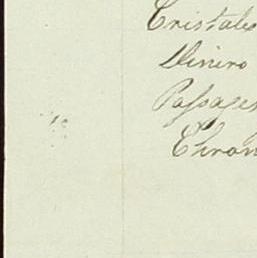 Cristales
Dinero
Passages
Chron